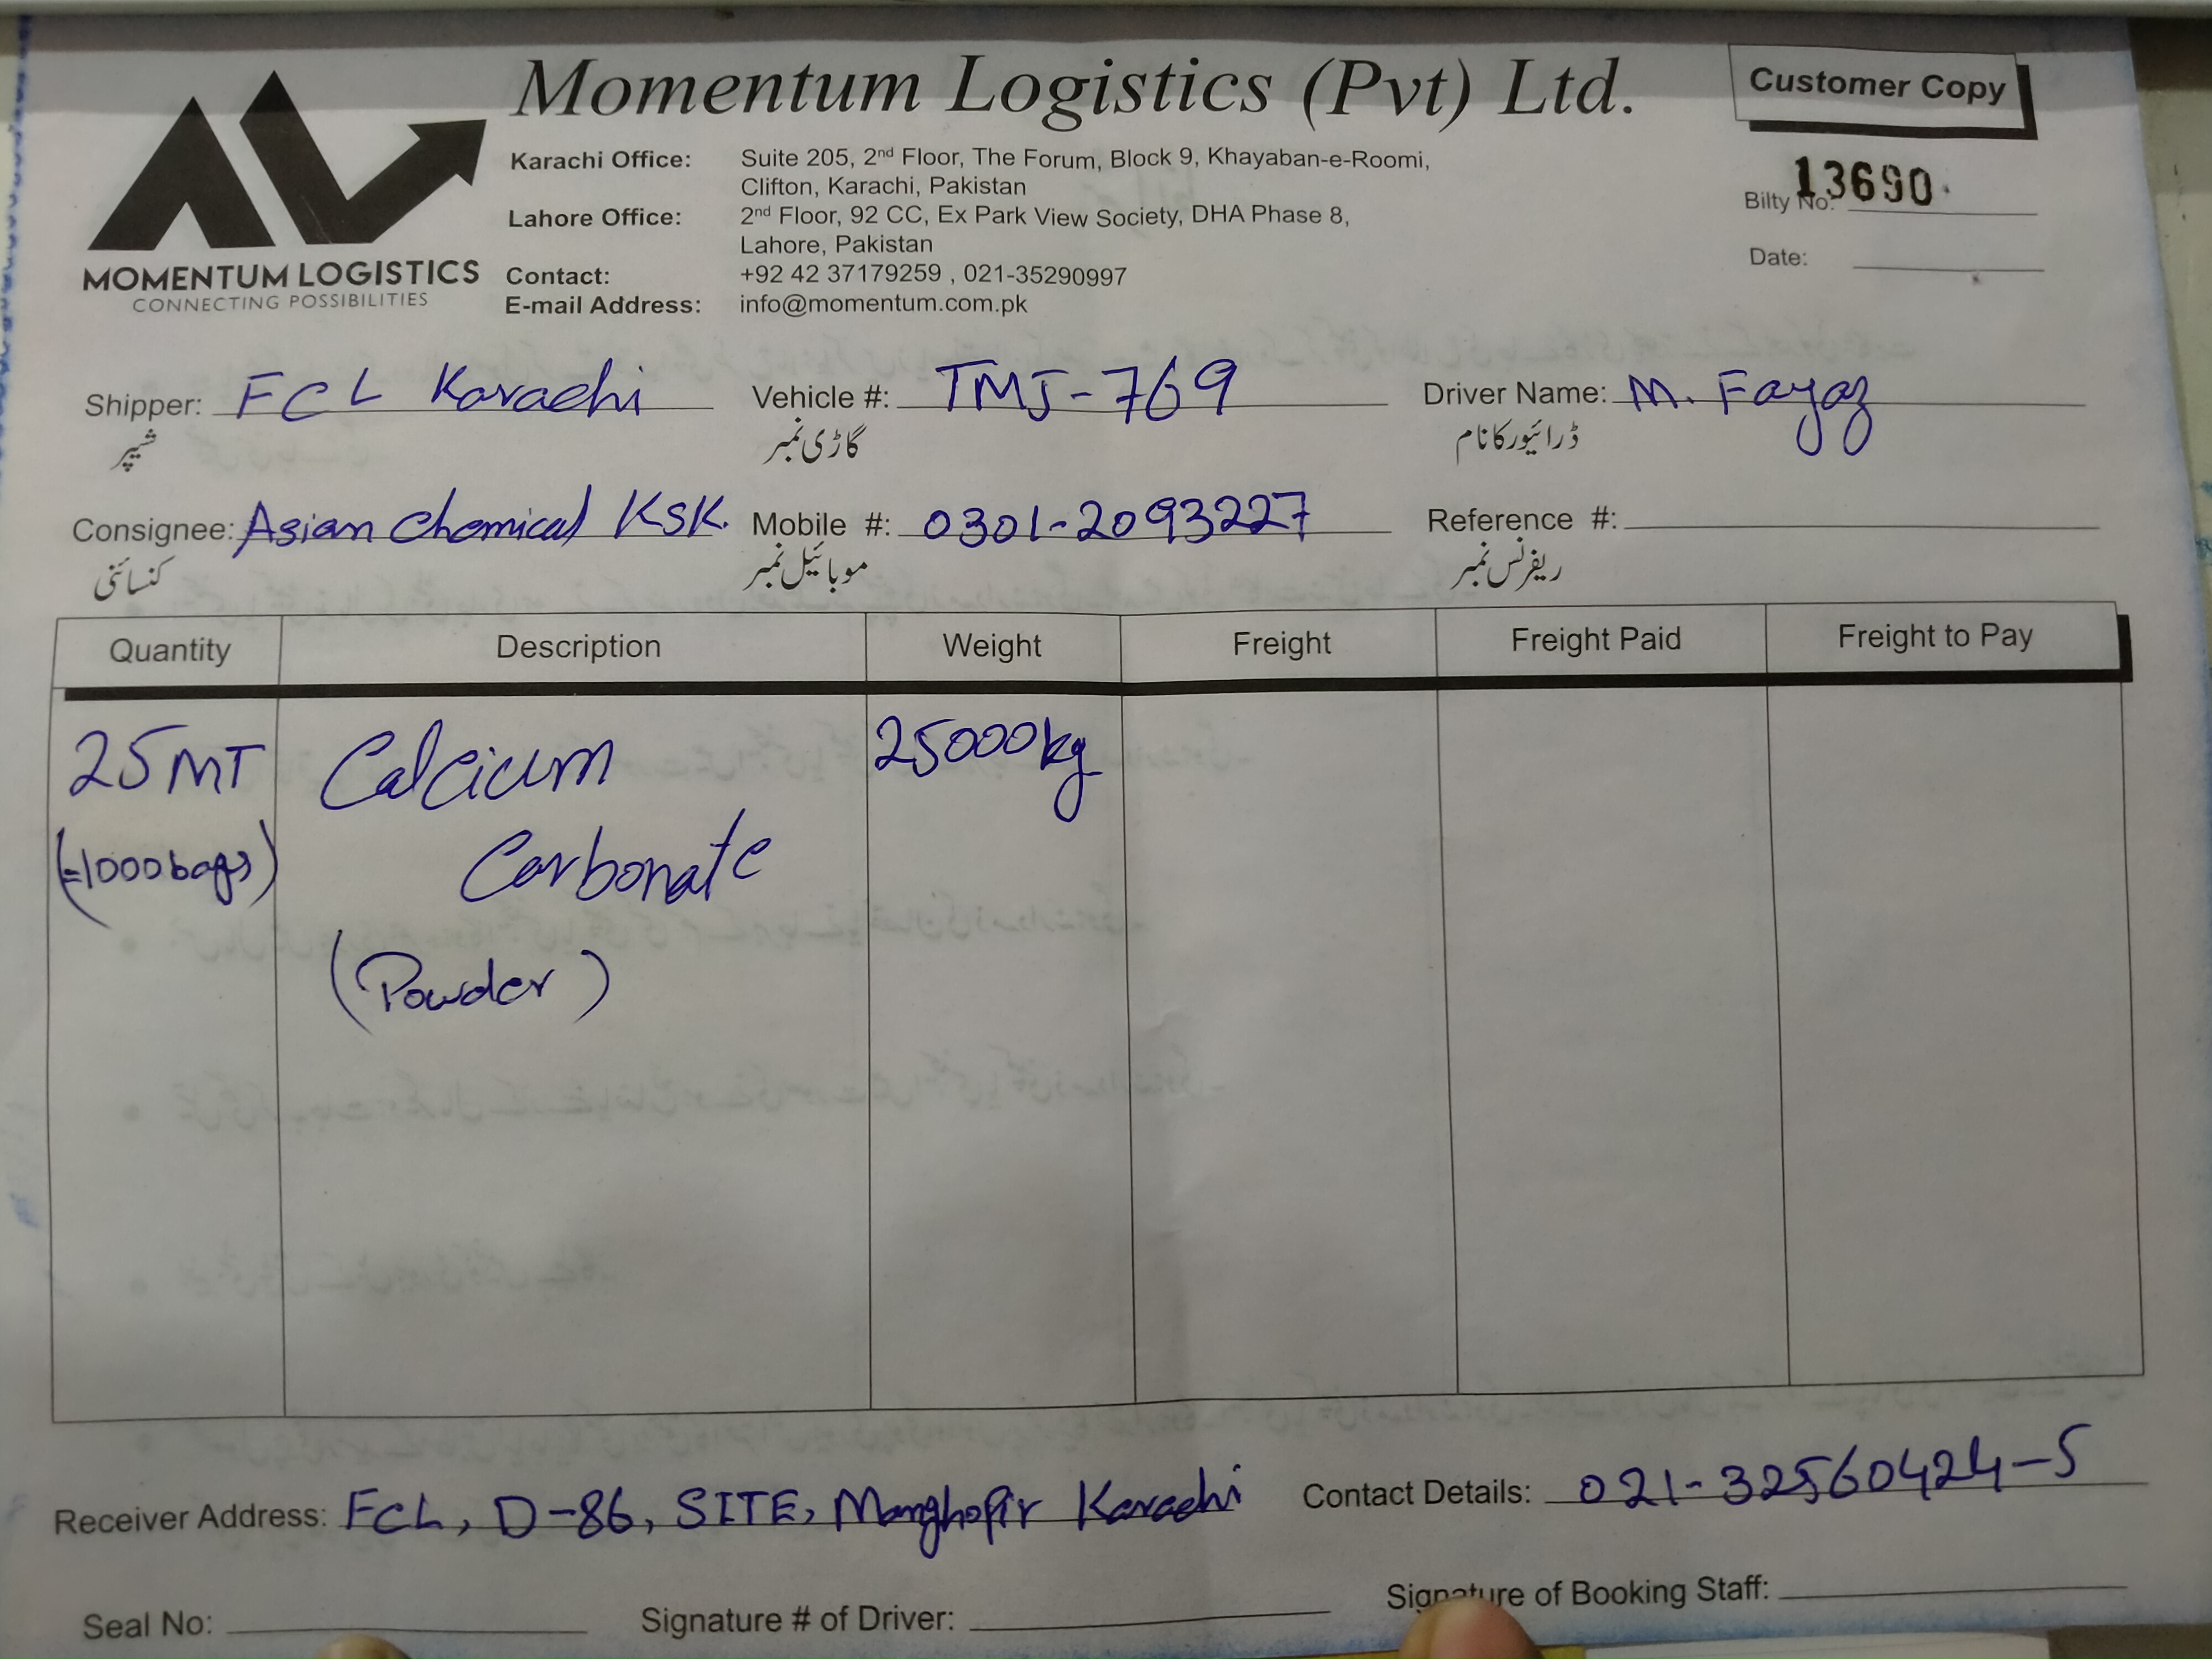 Momentum Logistics (Pvt) Ltd.
Customer Copy
MOMENTUM LOGISTICS
CONNECTING POSSIBILITIES
Karachi Office: Suite 205, 2nd Floor, The Forum, Block 9, Khayaban-e-Roomi,
Clifton, Karachi, Pakistan
Lahore Office: 2nd Floor, 92 CC, Ex Park View Society, DHA Phase 8,
Lahore, Pakistan
Contact: +92 42 37179259 , 021-35290997
E-mail Address: info@momentum.com.pk
Bilty No: 13690
Date:
Shipper: FCL Karachi Vehicle #: TMJ-769 Driver Name: M. Fayaz
شیپر گاڑی نمبر ڈرائیور کا نام
Consignee: Asian Chemical KSK. Mobile #: 0301-2093227 Reference #:
کنسائنی موبائیل نمبر ریفرنس نمبر
Quantity Description Weight Freight Freight Paid Freight to Pay
25MT Calcium 25000kg
(=1000bags) Carbonate
(Powder)
Receiver Address: FCL, D-86, SITE, Manghopir Karachi Contact Details: 021-32560424-5
Seal No: Signature # of Driver: Signature of Booking Staff: